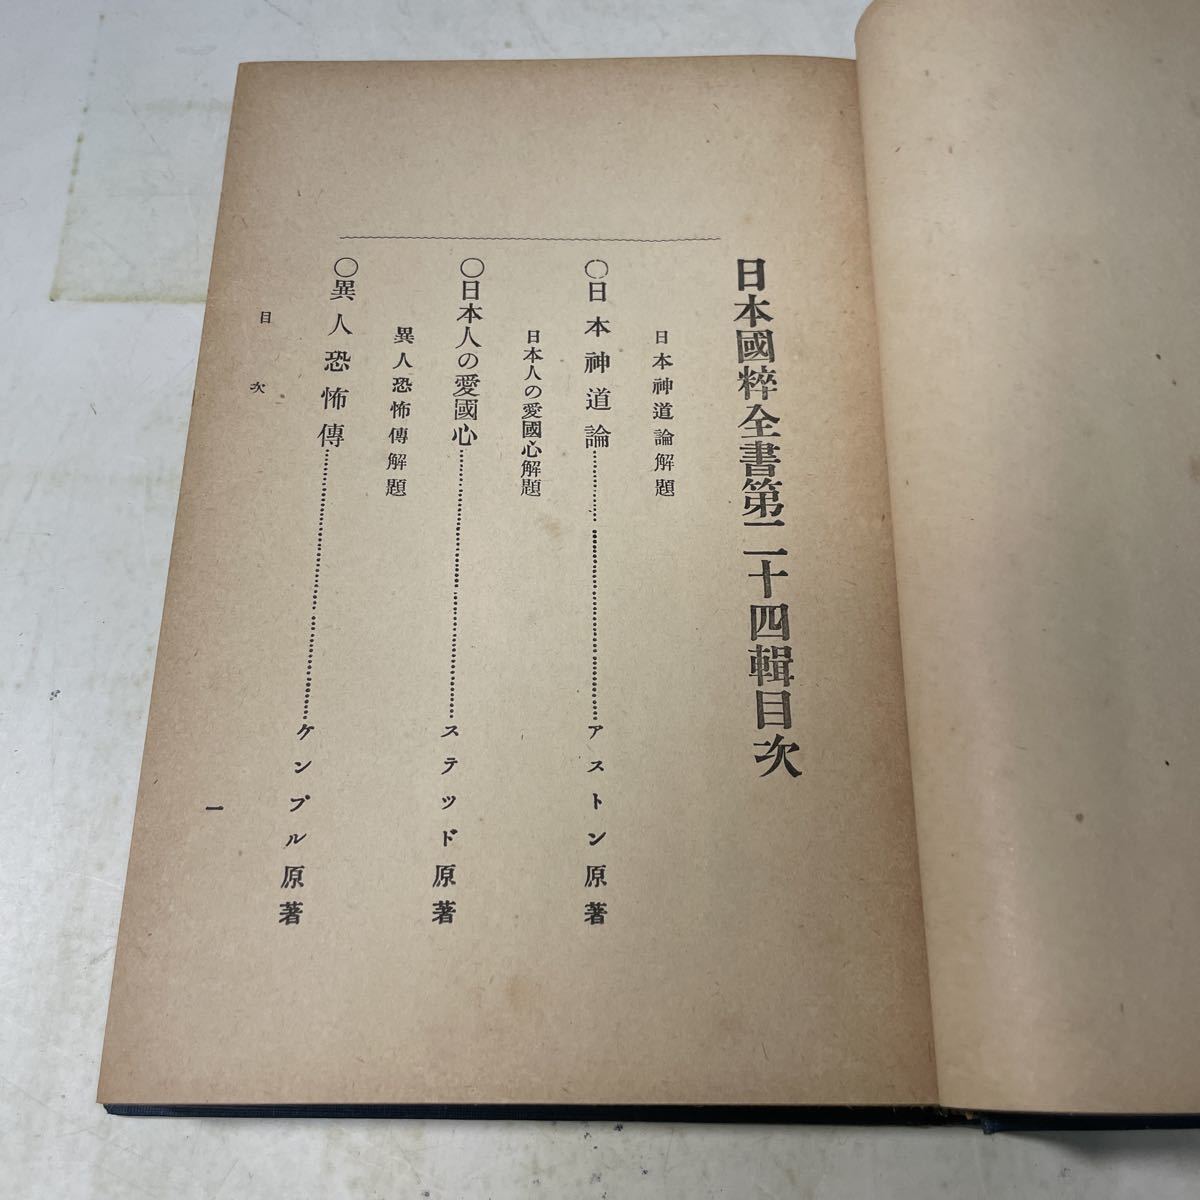 日本國粹全書第二十四輯目次
日本神道論解題
〇日本神道論……………………アストン原著
日本人の愛國心解題
〇日本人の愛國心……………………ステッド原著
異人恐怖傳解題
〇異人恐怖傳……………………ケンプル原著
目次
一